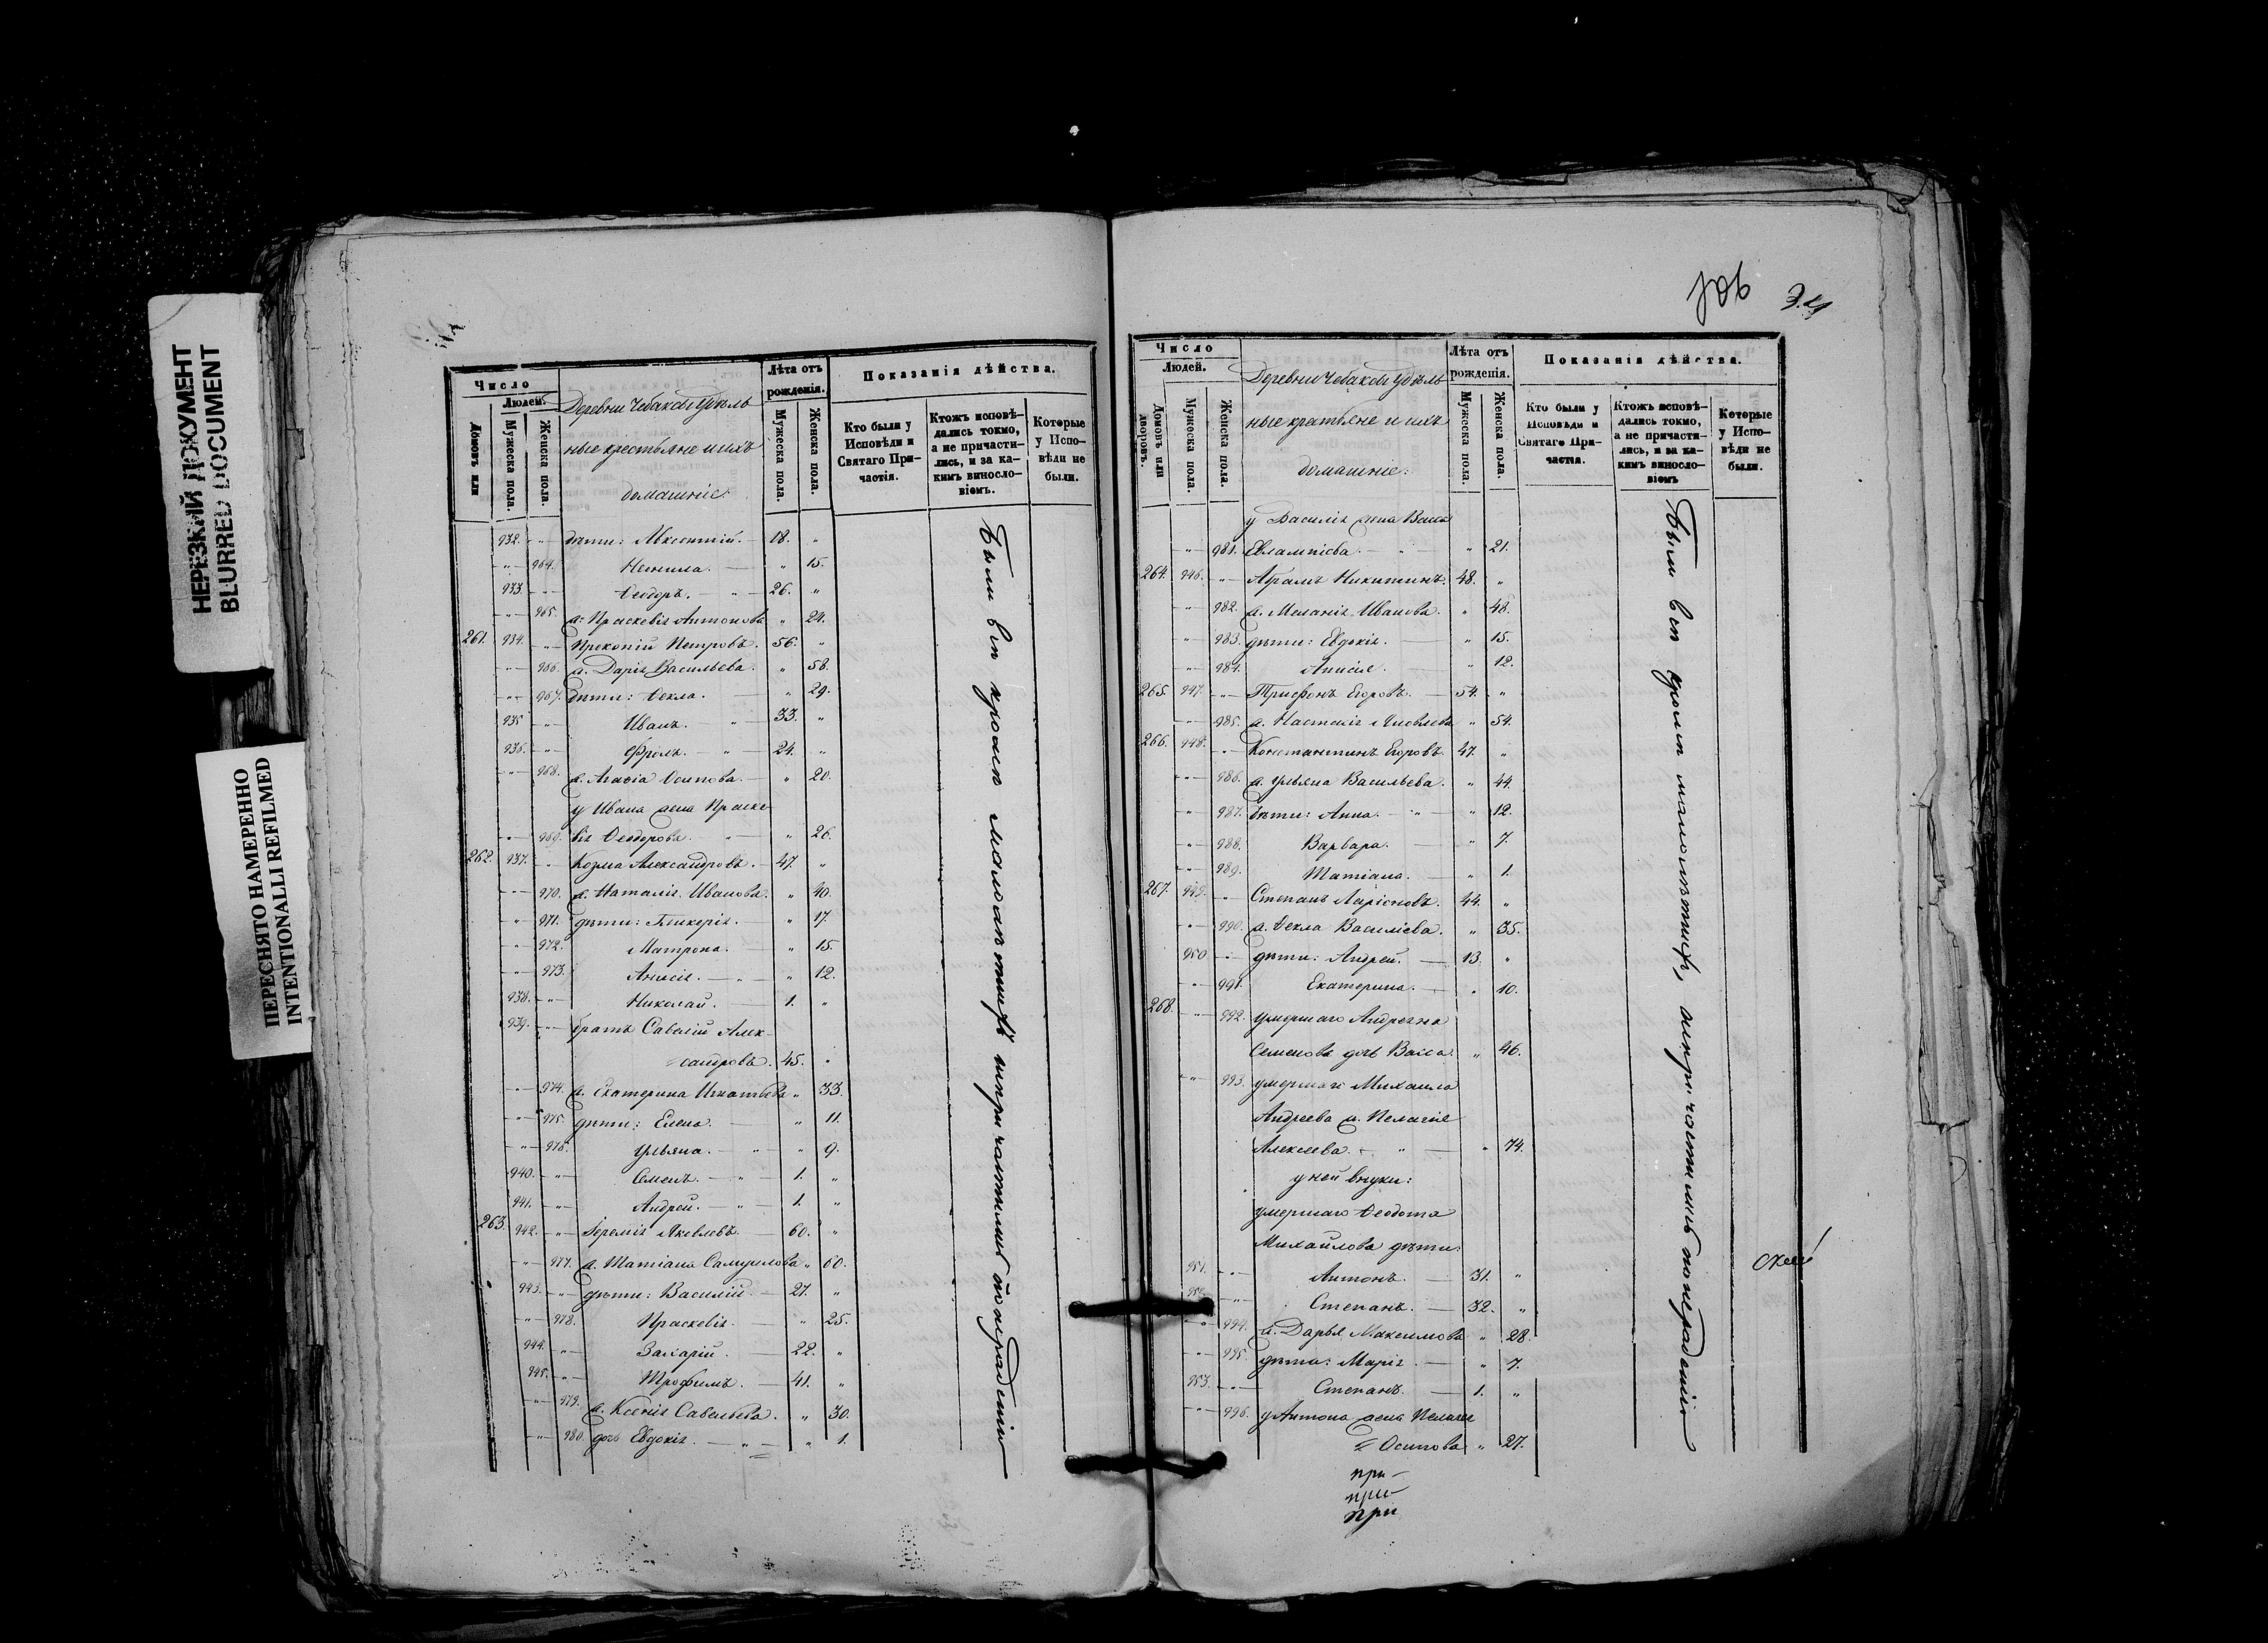 НЕРЕЗКИЙ ДОКУМЕНТ
BLURRED DOCUMENT
ПЕРЕСНЯТО НАМЕРЕННО
INTENTIONALLI REFILMED
Число
Людей.
Домовъ или
Мужеска пола.
Женска пола.
Деревни Чебаксы удѣль
ные крестьяне и ихъ
домашніе:
Лѣта отъ
рожденія.
Мужеска пола.
Женска пола.
Показанія дѣйства.
Кто были у
Исповѣди и
Святаго При-
частія.
Ктожъ исповѣ-
дались токмо,
а не причасти-
лись, и за ка-
кимъ виносло-
віемъ.
Которые
у Испо-
вѣди не
были.
932. дѣти: 18. "
" 964. Неонила. " 15.
933. " Ѳеодоръ. 26. "
" 965. ж: Праскевія Антонова " 24.
261. 934. " Прокопій Петровъ. 56. "
" 966. ж. Дарія Васильева. " 58.
" 967. дѣти: Ѳекла. " 29.
935 " Иванъ. 33. "
936. " Фролъ. 24. "
" 968. ж. Агаѳіа Осипова. " 20.
у Ивана жена Праске
" 969. вія Ѳеодорова. " 26.
262. 937. " Козма Александровъ. 47. "
" 970. ж. Наталія Иванова. " 40.
" 971. дѣти: Гликерія. " 17.
" 972. Матрона. " 15.
" 973. Анисія. " 12.
938. " Николай. 1. "
939. " братъ Савелій Алек-
сандровъ. 45. "
" 974. ж. Екатерина Игнатьева " 33.
" 975. дѣти: Елена. " 11.
" 976. Ульяна. " 9.
940. " Семенъ. 1. "
941. " Андрей. 1. "
263. 942. " Іеремія Яковлевъ. 60. "
" 977. ж. Татіана Самуилова " 60.
943. " дѣти: Василій 27. "
" 978. Праскевія. " 25.
944. " Захарій. 22. "
945. " Трофимъ. 41. "
" 979. ж. Ксенія Савельева. " 30.
" 980. дочь Евдокія. " 1.
Были всѣ кромѣ малолѣтнихъ
Число
Людей.
Домовъ или
дворовъ.
Мужеска пола.
Женска пола.
Деревни Чебаксы удѣль
ные крестьяне и ихъ
домашніе:
Лѣта отъ
рожденія.
Мужеска пола.
Женска пола.
Показанія дѣйства.
Кто были у
Исповѣди и
Святаго При-
частія.
Ктожъ исповѣ-
дались токмо,
а не причасти-
лись, и за ка-
кимъ виносло-
віемъ
Которые
у Испо-
вѣди не
были.
у Василія жена Васса
" 981. Евлампіева. " 21.
264. 946. " Абрамъ Никитинъ. 48. "
" 982. ж. Меланія Иванова. " 48.
" 983. дѣти: Евдокія. " 15.
" 984. Анисія. " 12.
265. 947. " Трифонъ Егоровъ. 54. "
" 985. ж. Настасія Яковлева " 54.
266. 948. " Константинъ Егоровъ. 47. "
" 986. ж. Ульяна Васильева. " 44.
" 987. дѣти: Анна. " 12.
" 988. Варвара. " 7.
" 989. Татіана. " 1.
267. 949. " Степанъ Ларіоновъ. 44. "
" 990. ж. Ѳекла Василіева. " 35.
950 " дѣти: Андрей. 13. "
" 991. Екатерина. " 10.
268. " 992. умершаго Андреяна
Семенова дочь Васса. " 46.
" 993. умершаго Михаила
Андреева ж. Пелагія
Алексеева. " 74.
у ней внуки:
умершаго Ѳеодота
Михайлова дѣти:
951. " Антонъ. 31. "
952. " Степанъ. 32. "
" 994. ж. Дарья Максимова " 28.
" 995. дѣти: Марія. " 7.
953. " Степанъ. 1. "
" 996. у Антона жена Пелагія
Осипова " 27.
при-
при-
при
Были всѣ кромѣ малолѣтнихъ,